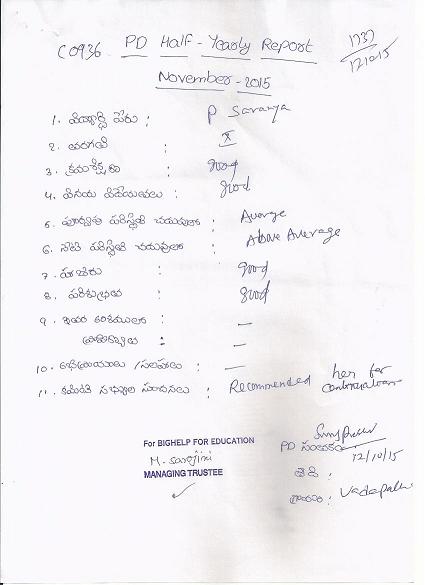 C0936. PD Half - Yearly Report 1737
12/10/15
November - 2015
1. విద్యార్థి పేరు : P Saranya
2. తరగతి : X
3. క్రమశిక్షణ : good
4. వినయ విధేయతలు : good
5. పూర్వపు పరిస్థితి చదువులో : Average
6. నేటి పరిస్థితి చదువులో : Above Average
7. హాజరు : good
8. పరిశుభ్రత : good
9. ఇతర : —
: —
10. అభిప్రాయాలు / సలహాలు : —
11. కమిటి సభ్యుల సూచనలు : Recommended her for continuation
For BIGHELP FOR EDUCATION
M. Sarojini
MANAGING TRUSTEE
PD సంతకం
12/10/15
తేది :
గ్రామం :